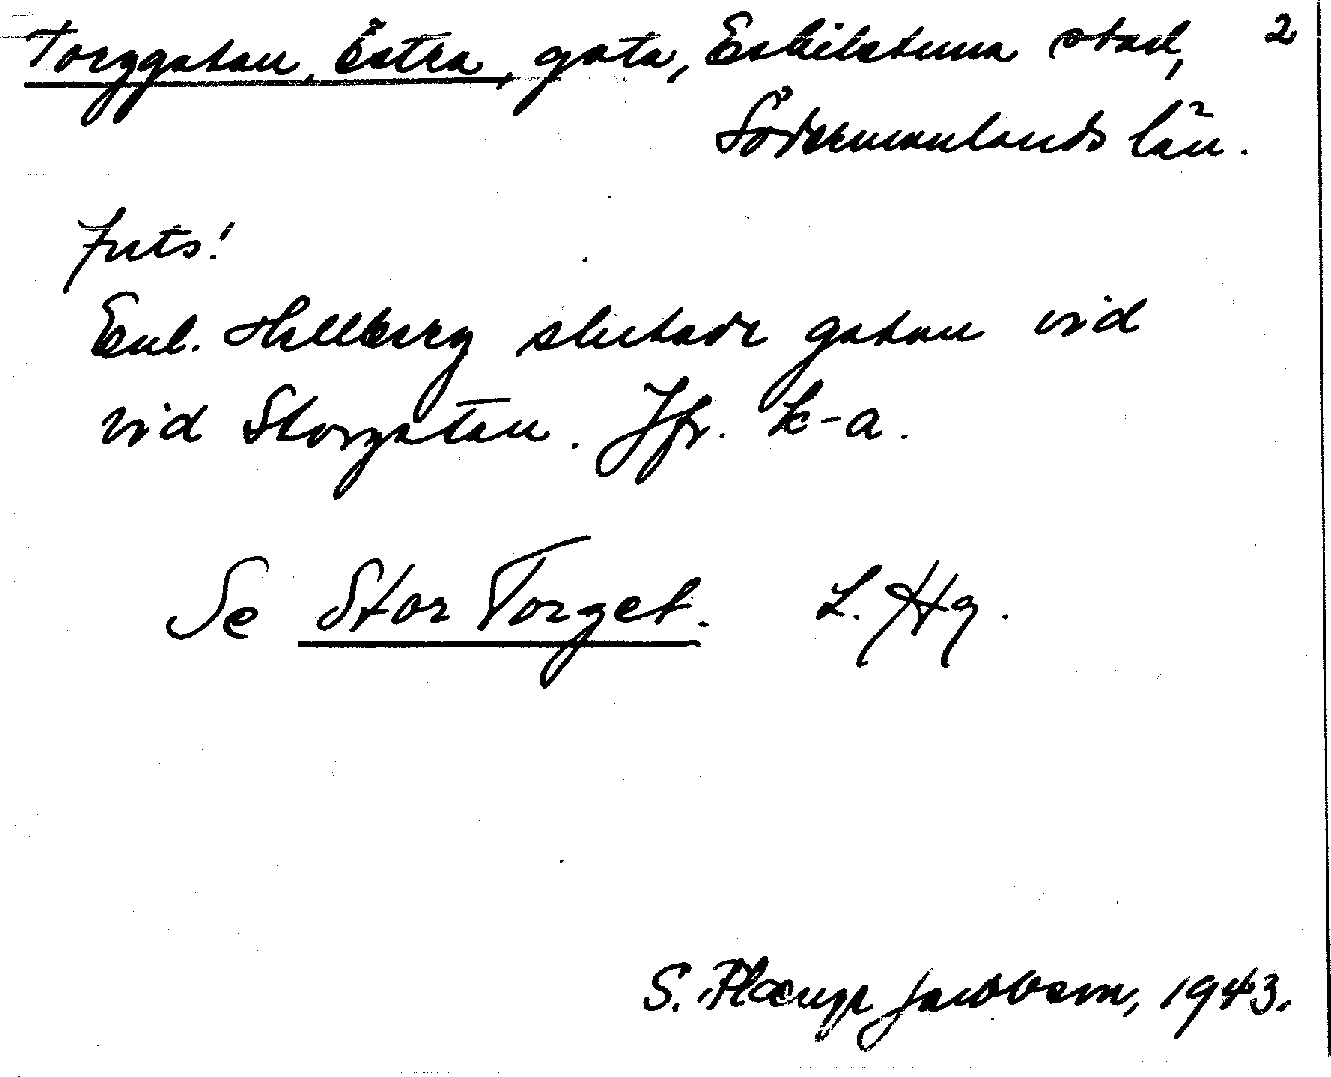 Torggatan, Östra, gata, Eskilstuna stad, 2
Södermanlands län.
forts!
Enl. Hellberg slutade gatan vid
vid Storgatan. Jfr. k-a.
Se Stor Torget. L. Hg.
S. Jacobsson, 1943.